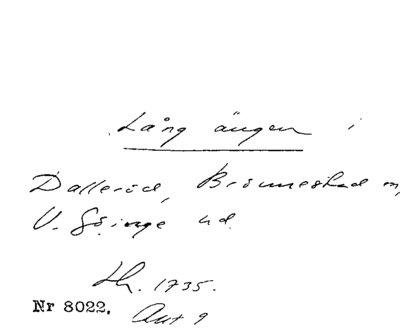 Lång ängen i
Dalleröd, Brönnestad m,
V. Göinge hd.
Lh. 1735.
Nr 8022. Akt 9